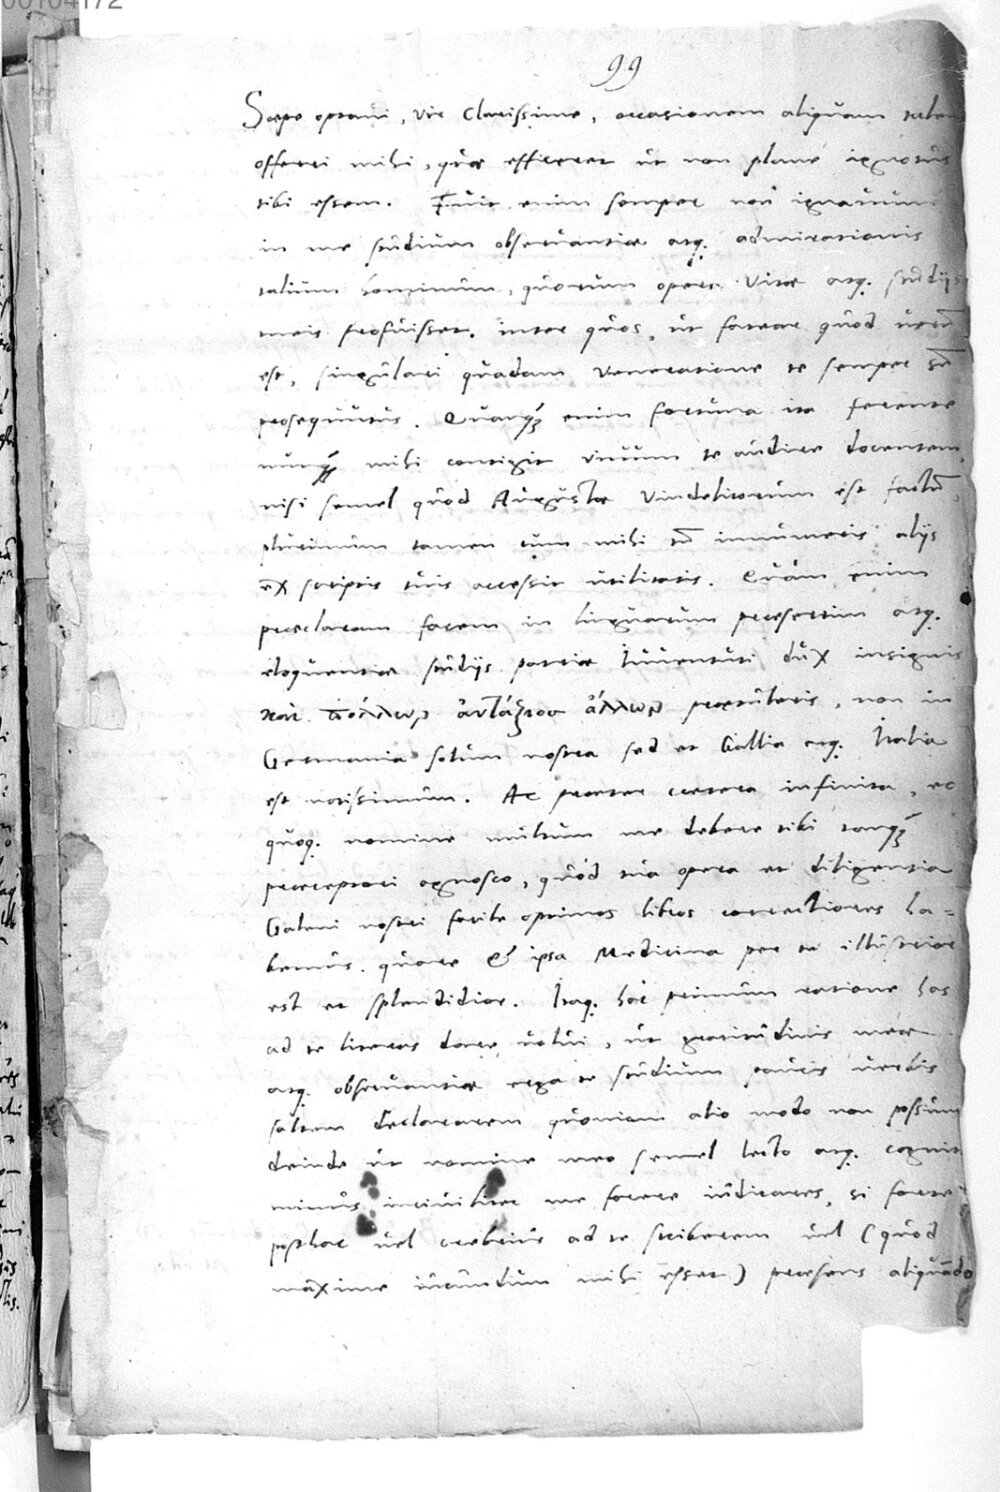 00104172
99
Saepe optaui, vir Clarissime, occasionem aliquam talem
offerri mihi, quae efficeret ut non plane ignotus
tibi essem. Fuit enim semper non ignauum
in me studium obseruantiae atq. admirationis
talium hominum, quorum opera vitae atq. studijs
meis profuisset. inter quos, ut fatear quod uerū
est, singulari quadam veneratione te semper sū
prosequutus. Quanq̃ enim fortuna ita ferente
nunq̃ mihi contigit viuum te audire docentem,
nisi semel quod Augustae Vindelicorum est factū,
plurimum tamen tum mihi tū innumeris alijs
ex scriptis tuis accessit utilitatis. Quàm enim
praeclaram facem in linguarum praesertim atq.
eloquentiae studijs patriae Iuuentuti dux insignis
καὶ πολλῶν ἀντάξιος ἄλλων praetuleris, non in
Germania solum nostra sed et Gallia atq. Italia
est notissimum. Ac praeter caetera infinita, eo
quoq. nomine multum me debere tibi tanq̃
praeceptori agnosco, quòd tua opera et diligentia
Galeni nostri facile optimos libros correctiores ha=
bemus. quare & ipsa Medicina per te illustrior
est et splendidior. Itaq. hac primum ratione has
ad te literas dare uolui, ut gratitudinis meae
atq. obseruantiae erga te studium paucis uerbis
saltem declararem quoniam alio modo non possum
deinde ut nomine meo semel lecto atq. cognito
minus inciuiliter me facere iudicares, si forte
posthac uel crebrius ad te scriberem uel (quod
maxime iucundum mihi esset) praesens aliquādo